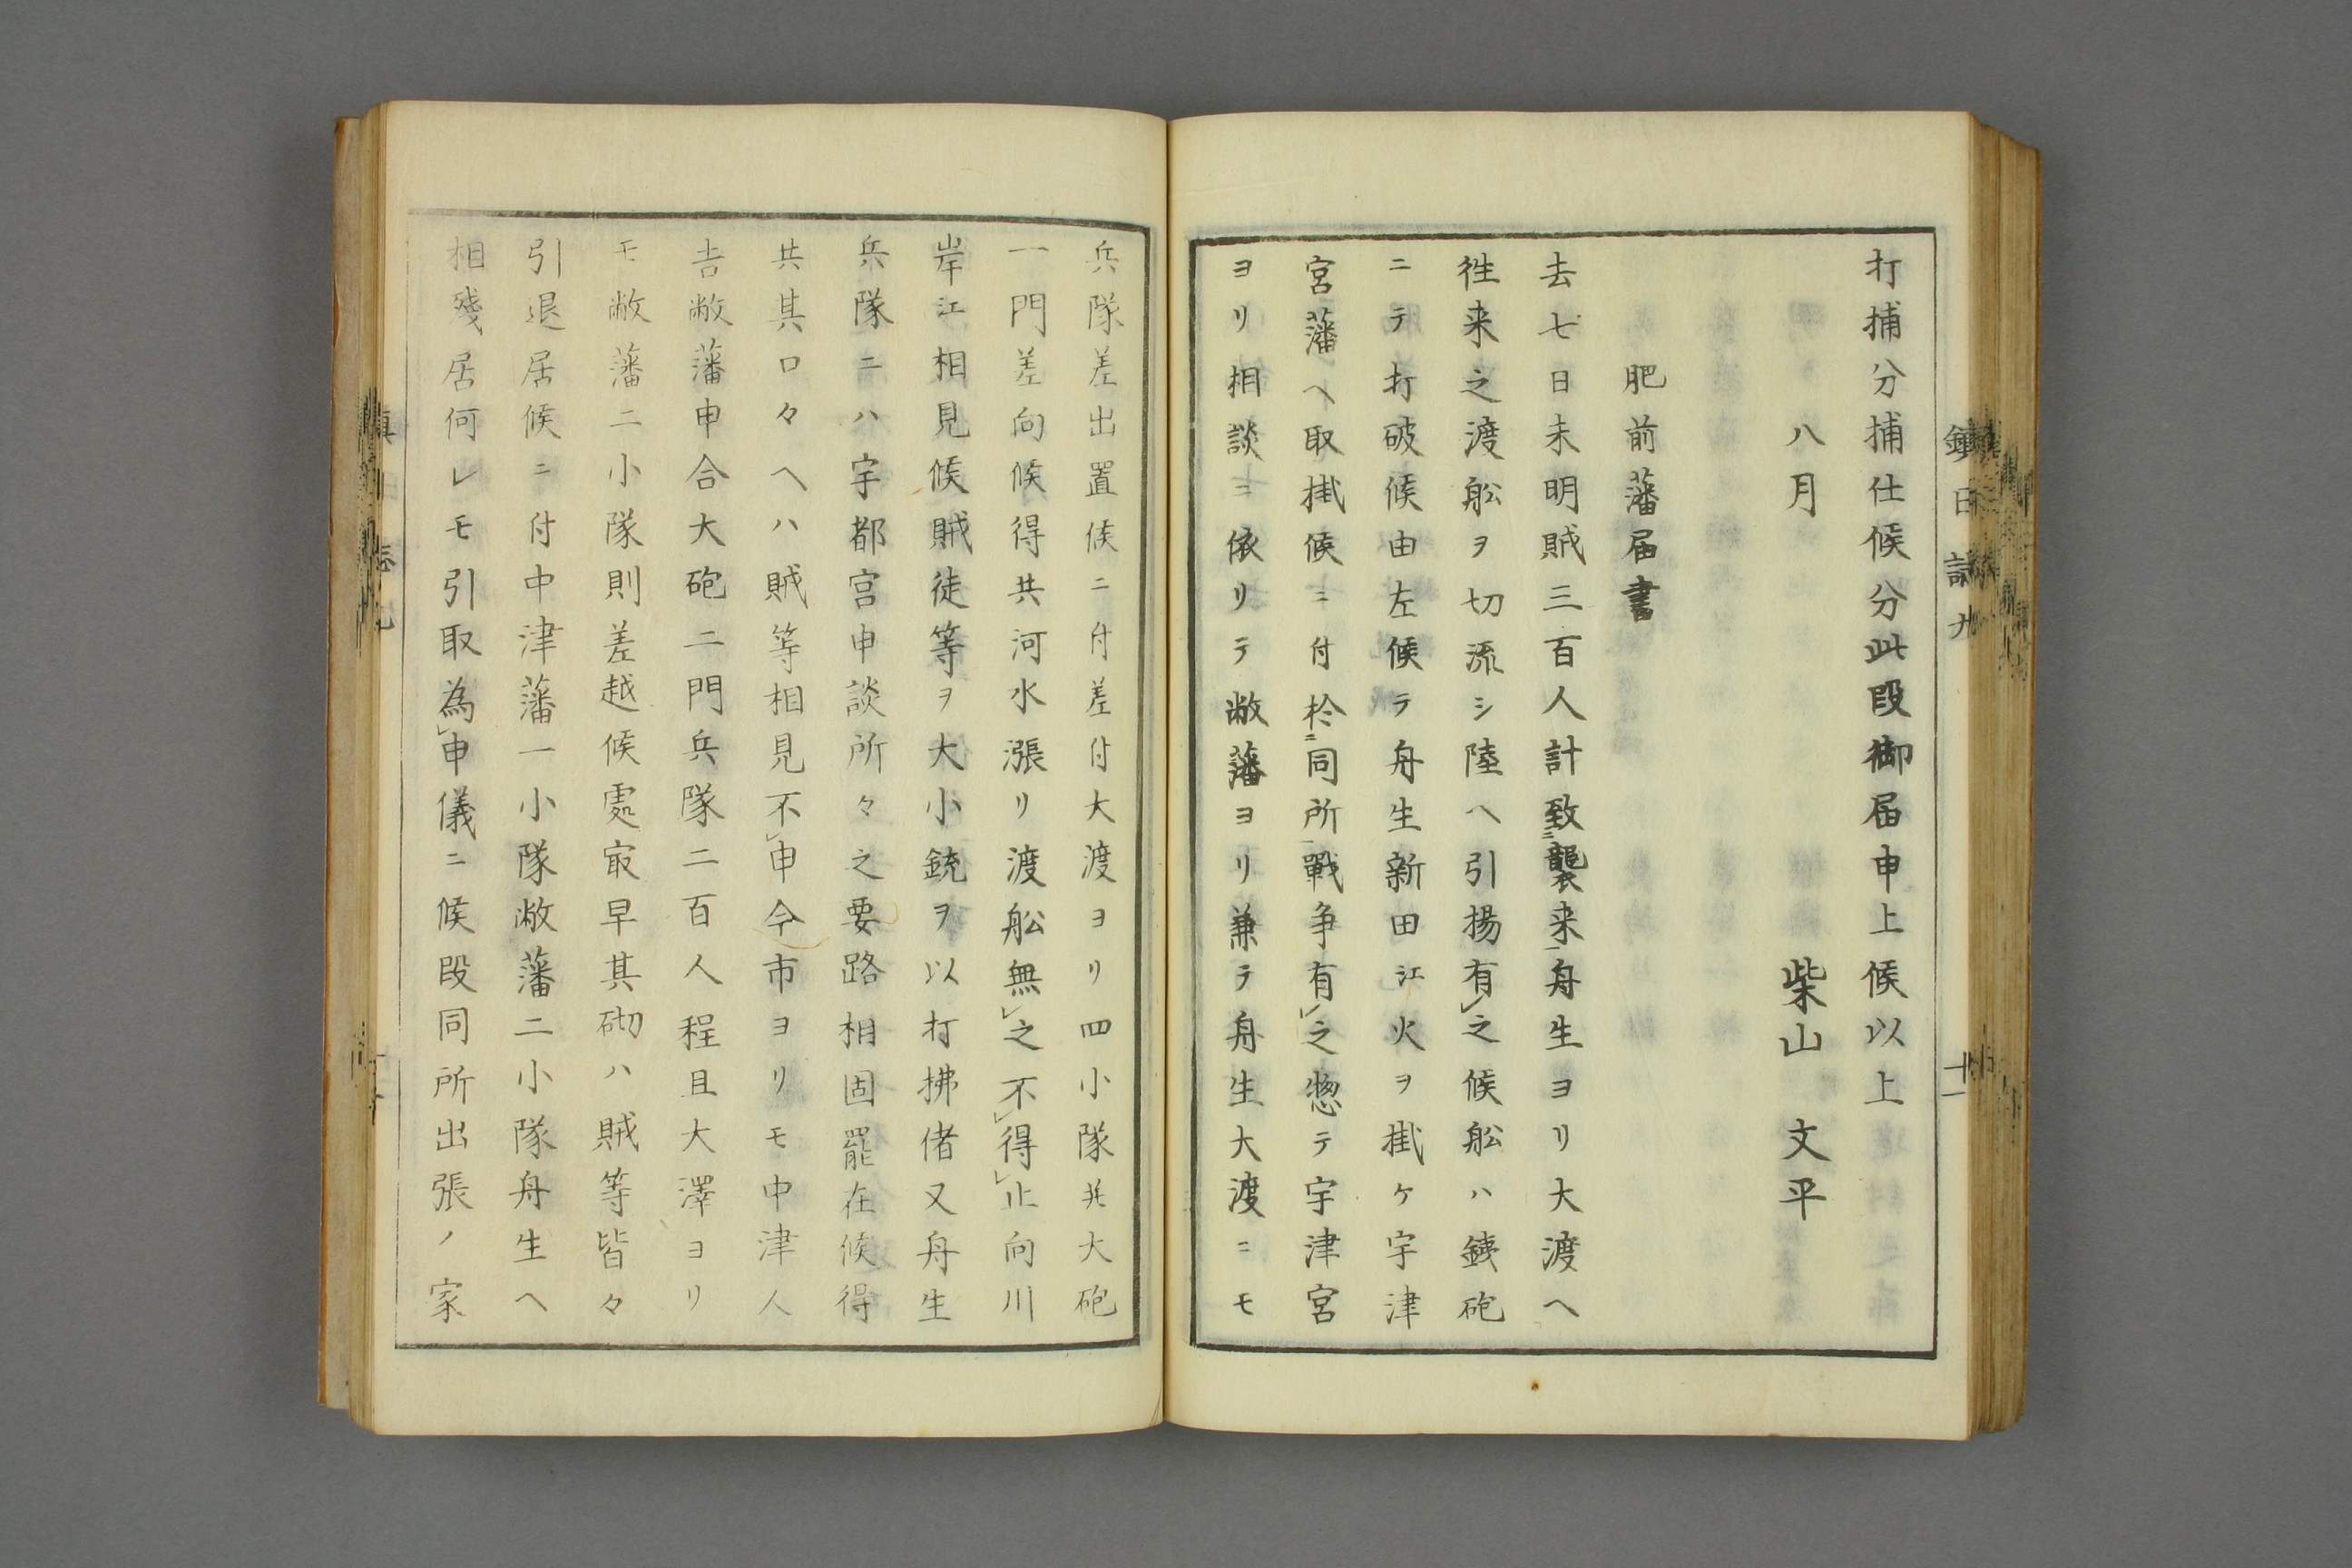 打捕分捕仕候分此段御届申上候以上
八月
柴山文平
肥前藩届書
去七日未明賊三百人計致ニ襲来一舟生ヨリ大渡ヘ
往来之渡舩ヲ切流シ陸ヘ引揚有レ之候舩ハ銕砲
ニテ打破候由左候テ舟生新田江火ヲ掛ケ宇津
宮藩ヘ取掛候ニ付於ニ同所一戰争有レ之惣テ宇津宮
ヨリ相談ニ依リテ敝藩ヨリ兼テ舟生大渡ニモ
鎮日誌九
十一
兵隊差出置候ニ付差付大渡ヨリ四小隊并大砲
一門差向候得共河水漲リ渡舩無レ之不レ得レ止向川
岸江相見候賊徒等ヲ大小銃ヲ以打拂偖又舟生
兵隊ニハ宇都宮申談所々之要路相固罷在候得
共其口々ヘハ賊等相見不レ申今市ヨリモ中津人
吉敝藩申合大砲二門兵隊二百人程且大澤ヨリ
モ敝藩二小隊則差越候處㝡早其砌ハ賊等皆々
引退居候ニ付中津藩一小隊敝藩二小隊舟生ヘ
相殘居何レモ引取為レ申儀ニ候段同所出張ノ家